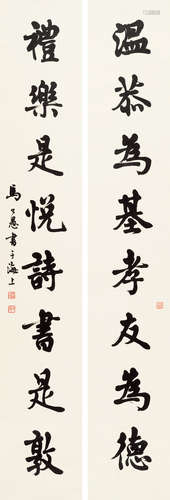 溫恭為基孝友為德
禮樂是悅詩書是敦
馬公愚書于海上